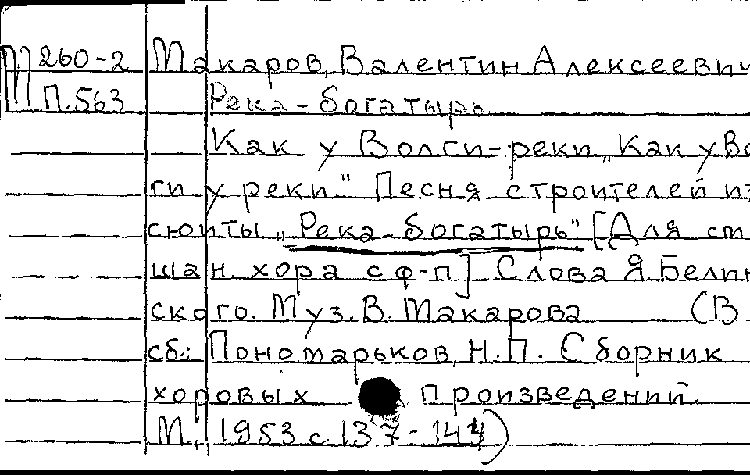 М 260-2 Макаров, Валентин Алексеевич
П.563 Река-богатырь
Как у Волги-реки „Как у Вол
ги у реки" Песня строителей из
сюиты „Река-богатырь" [Для сме
шан. хора с ф-п] Слова Я.Белин
ского. Муз. В. Макарова (В
сб.: Пономарьков, Н.П. Сборник
хоровых произведений.
М., 1953 с. 137-144)